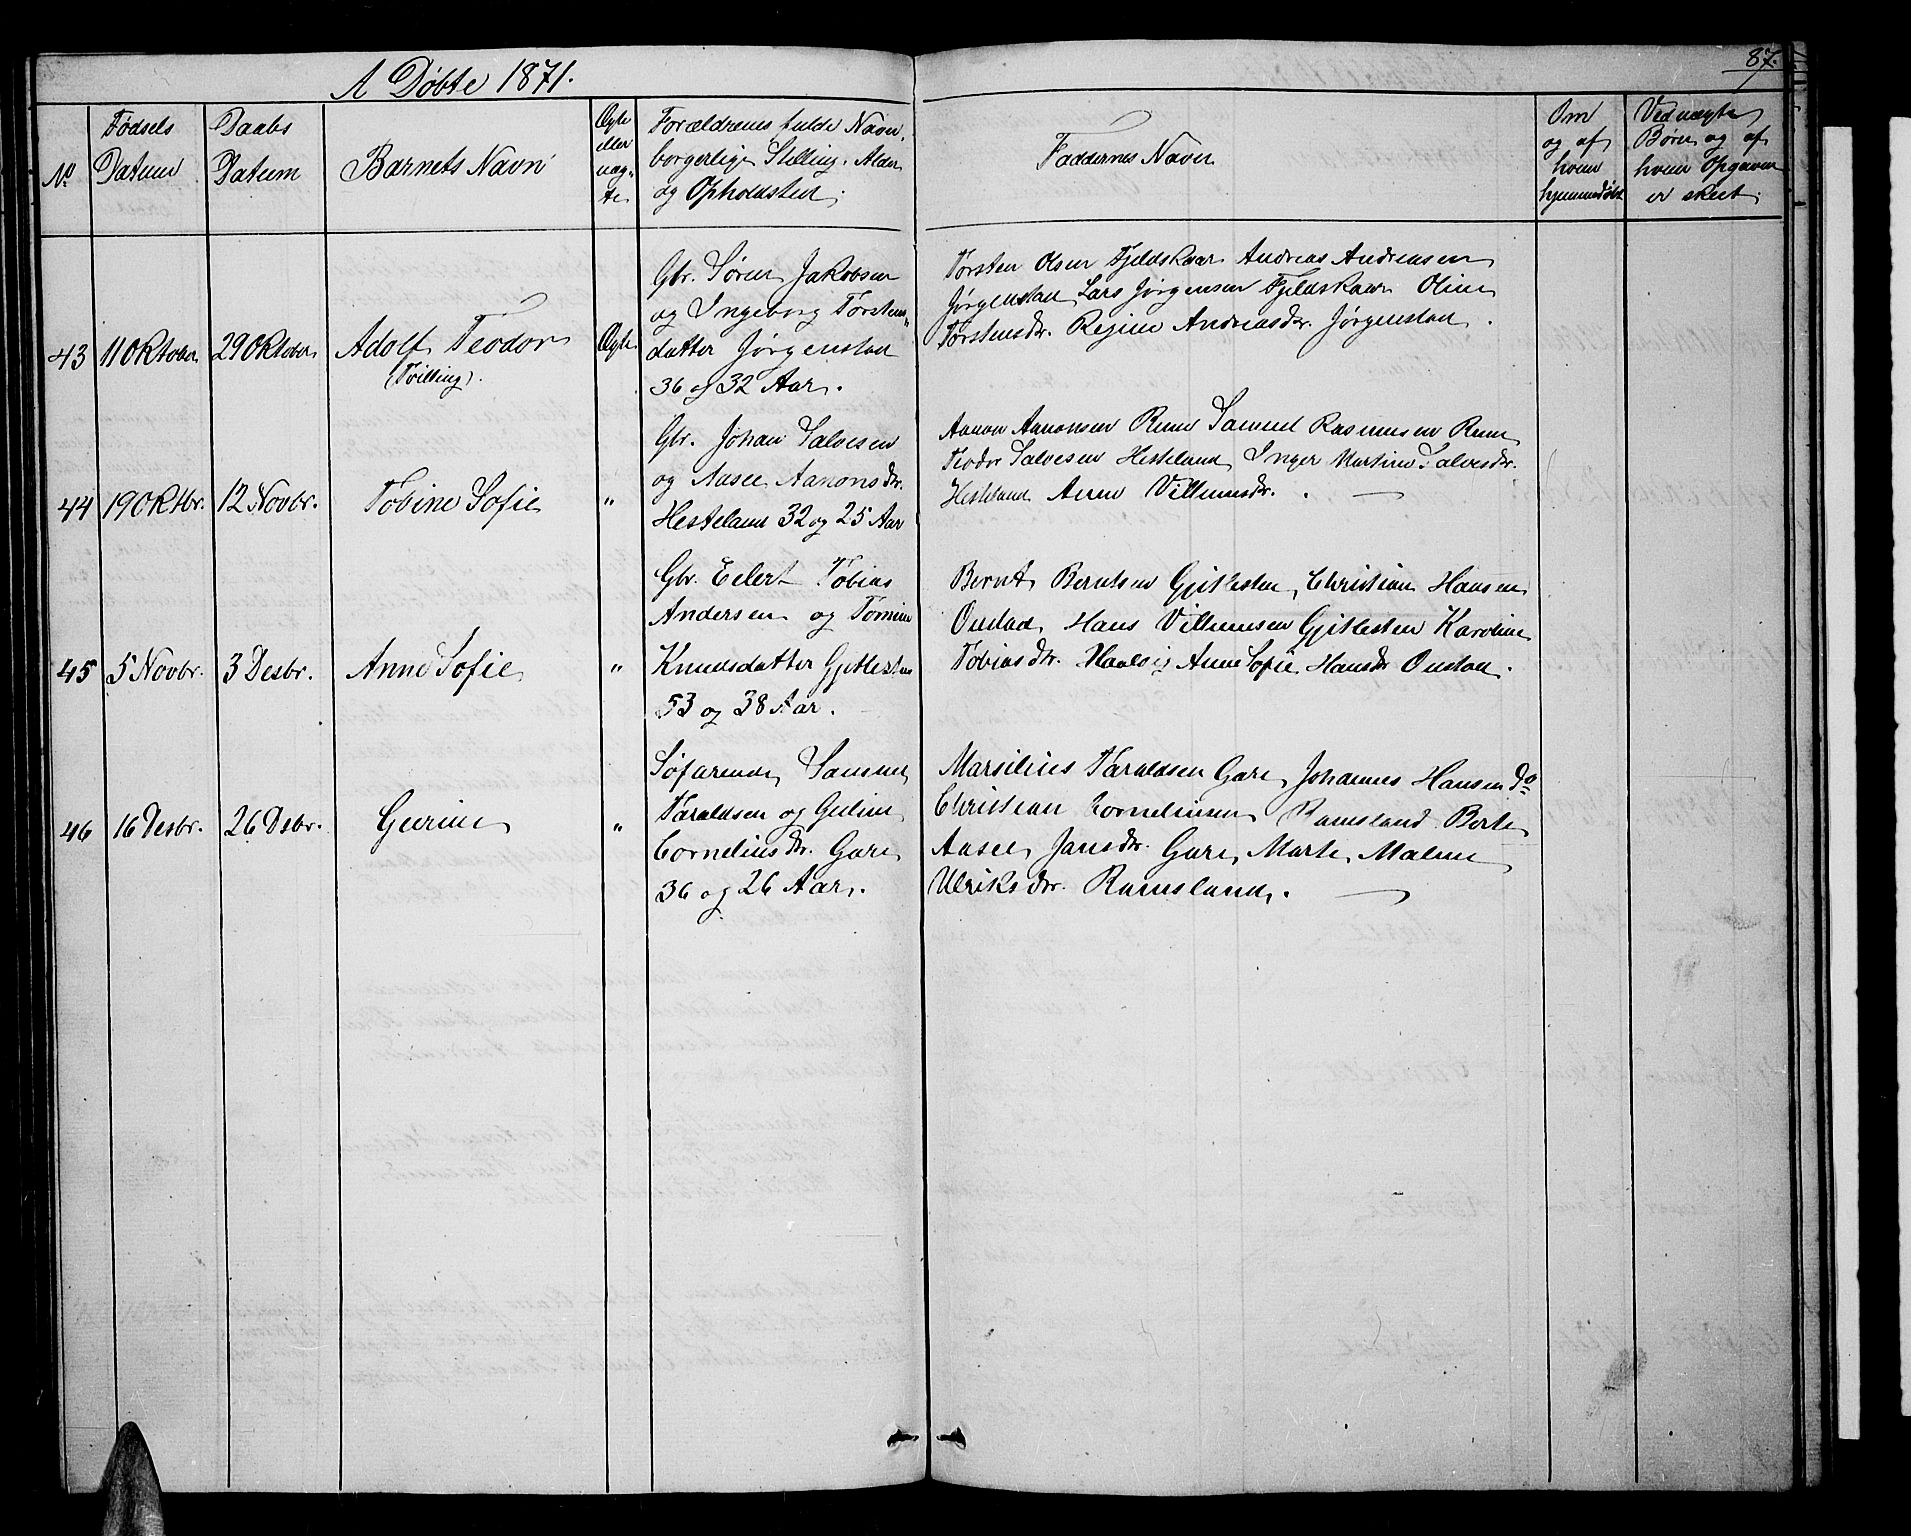 87.
A Døbte 1871.
No
Fødsels
Datum
Daabs
Datum
Barnets Navn
Ægte
eller
uæg-
te
Forældrenes fulde Navn,
borgerlige Stilling, Alder
og Opholdsted.
Faddernes Navn
Om
og af
hvem
hjemmedøbt
Ved uægte
Børn og af
hvem Opgaven
er skeet.
43 11 Oktober 29 Oktober Adolf Teodor
(Tvilling).
Ægte
Gbr. Søren Jakobsen
og Ingeborg Torstens-
datter Jørgenstad
36 og 32 Aar.
Torsten Olsen Fjeldskaar Andreas Andreasen
Jørgenstad Lars Jørgensen Fjeldskaar Oline
Torstensdr. Regine Andreasdr. Jørgenstad.
44 19 Oktbr. 12 Novbr. Tobine Sofie "
Gbr. Johan Salvesen
og Aasee Aanonsdr.
Hesteland 32 og 25 Aar
Aanon Aanonsen Samuel Rasmusen
Teodor Salvesen Hesteland, Inger Martine Salvesdr.
Hesteland Villumsdr.
45 5 Novbr. 3 Desbr. Anne Sofie "
Gbr. Eilert Tobias
Andersen og Tomine
Knudsdatter Gjitlesten
53 og 38 Aar.
Bernt Berntsen Gjitlesten, Christian Hansen
Oustad, Hans Villumsen Gjitlesten Karoline
Tobiasdr. Anne Sofie Hansdr Oustad.
46 16 Desbr. 26 Dsbr. Gurine "
Søfarende Samuel
Taraldsen og Guline
Corneliusdr. Gare
36 og 26 Aar.
Marselius Taraldsen Gare, Johannes Hansen do
Christian Corneliussen Ramsland Berte
Aasee Jansdr. Gare, Marte Malene
Ulriksdr. Ramsland.